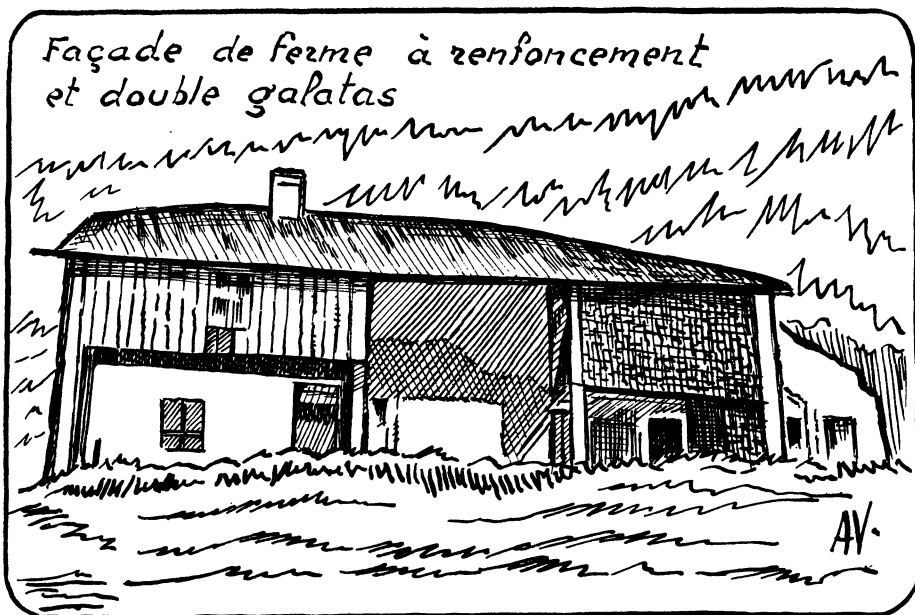 Façade de ferme à renfoncement
et double galatas
AV.